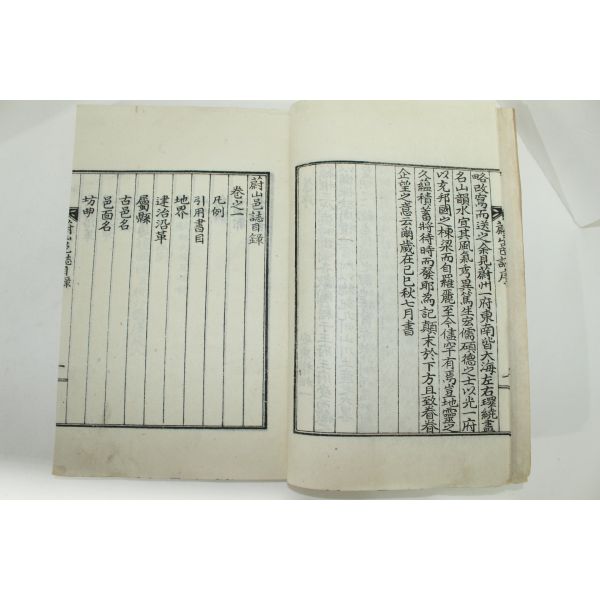 蔚山邑誌序
略改寫而送之余見蔚州一府東南皆大海左右環繞盡
名山韻水宜其風氣秀異篤生宏儒碩德之士以光一府
以充邦國之棟梁而自羅麗至今僅罕有焉豈地靈之
久蘊積蓄將待時而發耶爲記顚末於下方且致眷眷
企望之意云爾歲在己巳秋七月書
蔚山邑誌目錄
卷之一
凡例
引用書目
地界
建治沿革
屬縣
古邑名
邑面名
坊曲
蔚山邑誌目錄
一